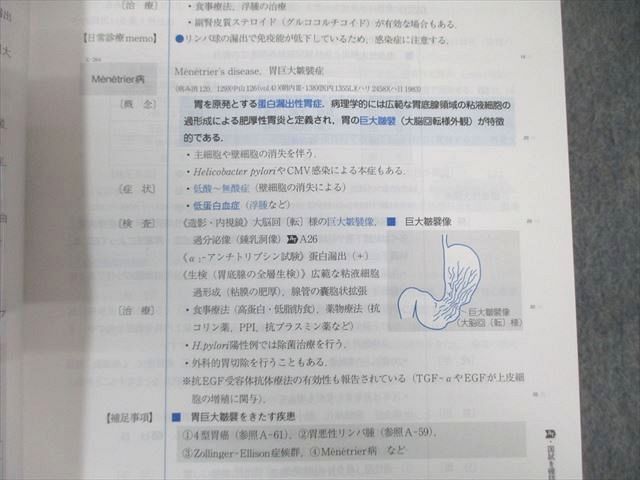 〔治 療〕
・食事療法，浮腫の治療
・副腎皮質ステロイド（グルココルチコイド）が有効な場合もある．
【日常診療memo】 ●リンパ球の漏出で免疫能が低下しているため，感染症に注意する．
Ménétrier病 Ménétrier's disease，胃巨大皺襞症
〔概 念〕 胃を原発とする蛋白漏出性胃症．病理学的には広範な胃底腺領域の粘液細胞の
過形成による肥厚性胃炎と定義され，胃の巨大皺襞（大脳回転様外観）が特徴
的である．
・主細胞や壁細胞の消失を伴う．
・Helicobacter pyloriやCMV感染による本症もある．
〔症 状〕 ・低酸～無酸症（壁細胞の消失による）
・低蛋白血症（浮腫など）
〔検 査〕 《造影・内視鏡》大脳回〔転〕様の巨大皺襞像，
過分泌像（鍾乳洞像） A26
《α₁-アンチトリプシン試験》蛋白漏出（+）
《生検（胃底腺の全層生検）》広範な粘液細胞
過形成（粘膜の肥厚），腺管の嚢胞状拡張
■ 巨大皺襞像
巨大皺襞像
（大脳回〔転〕様）
〔治 療〕 ・食事療法（高蛋白・低脂肪食），薬物療法（抗
コリン薬，PPI，抗プラスミン薬など）
・H.pylori陽性例では除菌治療を行う．
・外科的胃切除を行うこともある．
※抗EGF受容体抗体療法の有効性も報告されている（TGF-αやEGFが上皮細
胞の増殖に関与）．
【補足事項】 ■ 胃巨大皺襞をきたす疾患
①4型胃癌（参照A-61），②胃悪性リンパ腫（参照A-59），
③Zollinger-Ellison症候群，④Ménétrier病 など